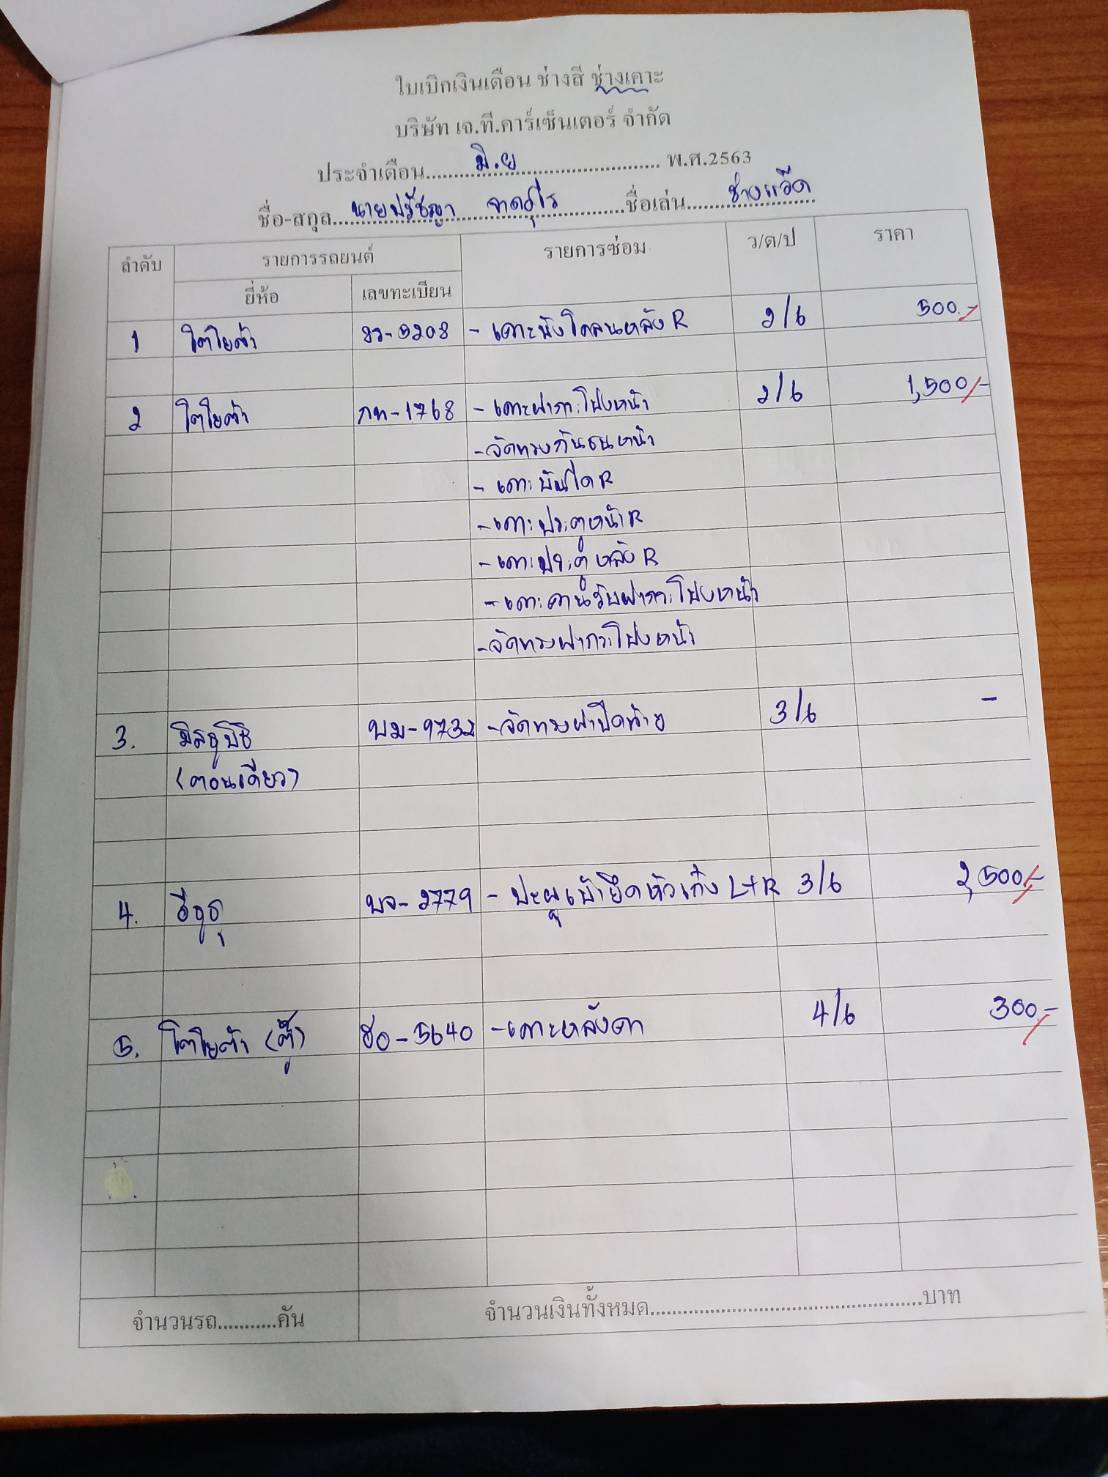 ใบเบิกเงินเดือน ช่างสี ช่างเคาะ
บริษัท เจ.ที.คาร์เซ็นเตอร์ จำกัด
ประจำเดือน.....มิ.ย..... พ.ศ.2563
ชื่อ-สกุล.....นายปรัชญา.....ชื่อเล่น.....ช่างแอ๊ด
ลำดับ รายการรถยนต์ รายการซ่อม ว/ด/ป ราคา
ยี่ห้อ เลขทะเบียน
1 โตโยต้า - เคาะบังโคลนหลัง R 2/6 500.-
2 โตโยต้า กท-1768 - เคาะฝากระโปงหน้า 2/6 1,500/-
- จัดทรงกันชนหน้า
- เคาะบันได R
- เคาะประตูหน้า R
- เคาะประตูหลัง R
- เคาะคานรับฝากระโปงหน้า
- จัดทรงฝากระโปงหน้า
3. มิตซูบิชิ บม-9732 - จัดทรงฝาปิดท้าย 3/6 -
(ตอนเดียว)
4. อีซูซุ บจ-2779 - ปะผุเบ้ายึดหัวเก๋ง L+R 3/6 2,500/-
5. โตโยต้า (ตู้) ฮอ-5640 - เคาะหลังคา 4/6 300/-
จำนวนรถ...........คัน จำนวนเงินทั้งหมด..............................................บาท